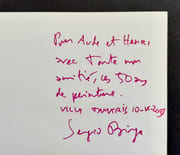 Pour Aude et Henri
avec toute mon
amitié, ces 50 ans
de peinture.
VILLA TAMARIS 10-
Sergio Birga